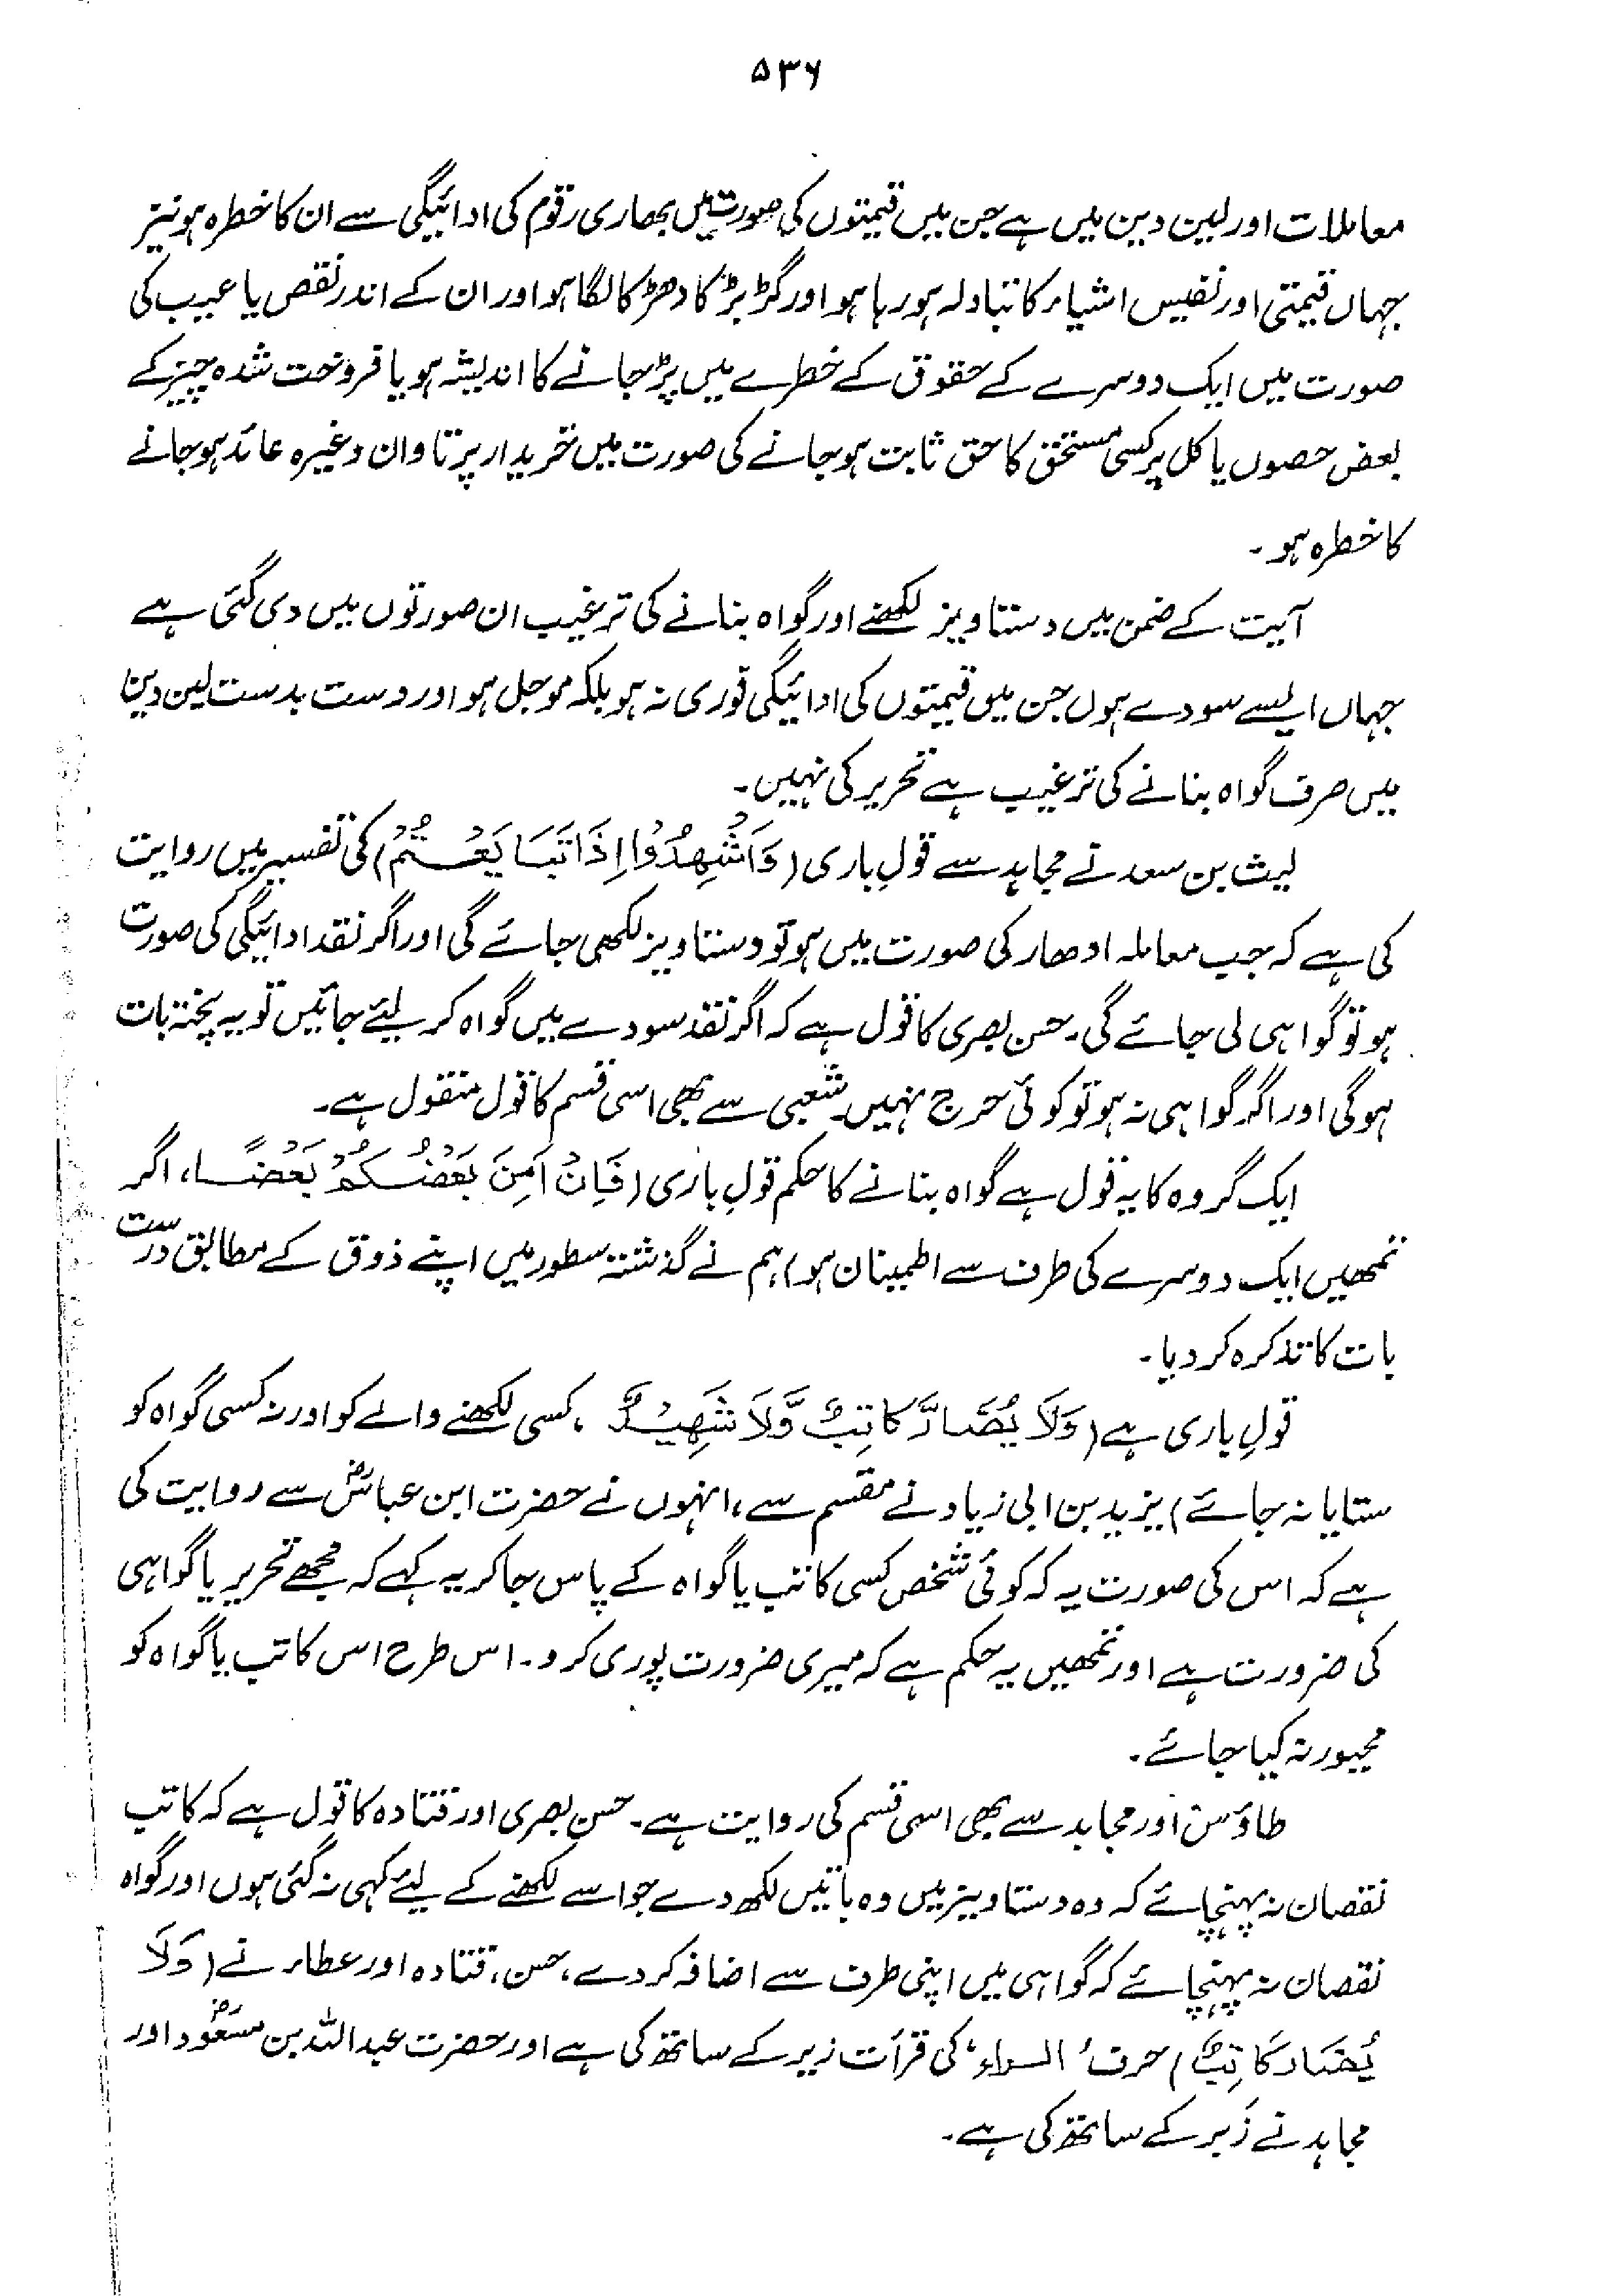 ۵۳۶
معاملات اور لین دین میں ہے جن میں قیمتوں کی صورت میں بھاری رقوم کی ادائیگی سے ان کا خطرہ ہو نیز
جہاں قیمتی اور نفیس اشیاء کا تبادلہ ہو رہا ہو اور گڑبڑ کا دھڑکا لگا ہو اور ان کے اندر نقص یا عیب کی
صورت میں ایک دوسرے کے حقوق کے خطرے میں پڑ جانے کا اندیشہ ہو یا فروخت شدہ چیز کے
بعض حصوں یا کل پر کسی مستحق کا حق ثابت ہو جانے کی صورت میں خریدار پر تاوان وغیرہ عائد ہو جانے
کا خطرہ ہو۔
آیت کے ضمن میں دستاویز لکھنے اور گواہ بنانے کی ترغیب ان صورتوں میں دی گئی ہے
جہاں ایسے سودے ہوں جن میں قیمتوں کی ادائیگی فوری نہ ہو بلکہ موجل ہو اور دست بدست لین دین
میں صرف گواہ بنانے کی ترغیب ہے تحریر کی نہیں۔
لیث بن سعد نے مجاہد سے قولِ باری (وَاَشْهِدُوْا اِذَا تَبَایَعْتُمْ) کی تفسیر میں روایت
کی ہے کہ جب معاملہ ادھار کی صورت میں ہو تو دستاویز لکھی جائے گی اور اگر نقد ادائیگی کی صورت
ہو تو گواہی لی جائے گی۔ حسن بصری کا قول ہے کہ اگر نقد سودے میں گواہ کر لیئے جائیں تو یہ پختہ بات
ہوگی اور اگر گواہی نہ ہو تو کوئی حرج نہیں۔ شعبی سے بھی اسی قسم کا قول منقول ہے۔
ایک گروہ کا یہ قول ہے گواہ بنانے کا حکم قولِ باری (فَاِنْ اَمِنَ بَعْضُكُمْ بَعْضًا، اگر
تمھیں ایک دوسرے کی طرف سے اطمینان ہو) ہم نے گذشتہ سطور میں اپنے ذوق کے مطابق درست
بات کا تذکرہ کر دیا۔
قولِ باری ہے (وَلَا یُضَارَّ كَاتِبٌ وَّلَا شَهِیْدٌ، کسی لکھنے والے کو اور نہ کسی گواہ کو
ستایا نہ جائے) یزید بن ابی زیاد نے مقسم سے، انہوں نے حضرت ابن عباسؓ سے روایت کی
ہے کہ اس کی صورت یہ کہ کوئی شخص کسی کاتب یا گواہ کے پاس جا کر یہ کہے کہ مجھے تحریر یا گواہی
کی ضرورت ہے اور تمھیں یہ حکم ہے کہ میری ضرورت پوری کرو۔ اس طرح اس کاتب یا گواہ کو
مجبور نہ کیا جائے۔
طاؤس اور مجاہد سے بھی اسی قسم کی روایت ہے۔ حسن بصری اور قتادہ کا قول ہے کہ کاتب
نقصان نہ پہنچائے کہ وہ دستاویز میں وہ باتیں لکھ دے جو اسے لکھنے کے لیئے کہی نہ گئی ہوں اور گواہ
نقصان نہ پہنچائے کہ گواہی میں اپنی طرف سے اضافہ کر دے، حسن، قتادہ اور عطاء نے (وَلَا
یُضَار كَاتِبٌ) حرف 'الراء' کی قرأت زیر کے ساتھ کی ہے اور حضرت عبداللہ بن مسعودؓ اور
مجاہد نے زَبر کے ساتھ کی ہے۔